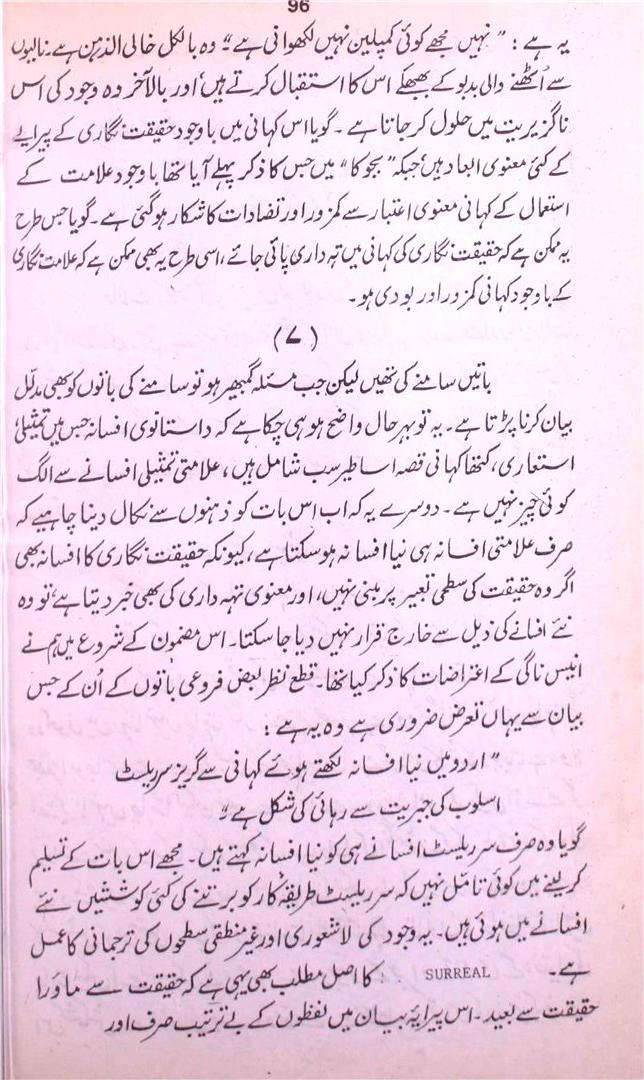 96
یہ ہے: "نہیں مجھے کوئی کمپلین نہیں لکھوانی ہے" وہ بالکل خالی الذہن ہے۔ نالیوں
سے اُٹھنے والی بدبو کے بھبھکے اس کا استقبال کرتے ہیں، اور بالآخر وہ وجود کی اس
ناگزیریت میں حلول کر جاتا ہے۔ گویا اس کہانی میں باوجود حقیقت نگاری کے پیرایے
کے کئی معنوی ابعاد ہیں، جبکہ "بجوکا" میں جس کا ذکر پہلے آیا تھا باوجود علامت کے
استعمال کے کہانی معنوی اعتبار سے کمزور اور تضادات کا شکار ہو گئی ہے۔ گویا جس طرح
یہ ممکن ہے کہ حقیقت نگاری کی کہانی میں تہہ داری پائی جائے، اسی طرح یہ بھی ممکن ہے کہ علامت نگاری
کے باوجود کہانی کمزور اور بودی ہو۔
(۷)
باتیں سامنے کی تھیں لیکن جب مسئلہ گمبھیر ہو تو سامنے کی باتوں کو بھی مدلّل
بیان کرنا پڑتا ہے۔ یہ تو بہر حال واضح ہو ہی چکا ہے کہ داستانوی افسانہ جس میں تمثیلی،
استعاری، کتھا کہانی قصہ اساطیر سب شامل ہیں، علامتی تمثیلی افسانے سے الگ
کوئی چیز نہیں ہے۔ دوسرے یہ کہ اب اس بات کو ذہنوں سے نکال دینا چاہیے کہ
صرف علامتی افسانہ ہی نیا افسانہ ہو سکتا ہے، کیونکہ حقیقت نگاری کا افسانہ بھی
اگر وہ حقیقت کی سطحی تعبیر پر مبنی نہیں، اور معنوی تہہ داری کی بھی خبر دیتا ہے، تو وہ
نئے افسانے کی ذیل سے خارج قرار نہیں دیا جا سکتا۔ اس مضمون کے شروع میں ہم نے
انیس ناگی کے اعتراضات کا ذکر کیا تھا۔ قطع نظر بعض فروعی باتوں کے اُن کے جس
بیان سے یہاں تعرض ضروری ہے وہ یہ ہے:
"اردو میں نیا افسانہ لکھتے ہوئے کہانی سے گریز سرریلسٹ
اسلوب کی جبریت سے رہائی کی شکل ہے"
گویا وہ صرف سرریلسٹ افسانے ہی کو نیا افسانہ کہتے ہیں۔ مجھے اس بات کے تسلیم
کر لینے میں کوئی تامّل نہیں کہ سرریلسٹ طریقۂ کار کو برتنے کی کئی کوششیں نئے
افسانے میں ہوئی ہیں۔ یہ وجود کی لاشعوری اور غیر منطقی سطحوں کی ترجمانی کا عمل
ہے۔ SURREAL کا اصل مطلب بھی یہی ہے کہ حقیقت سے ماورا
حقیقت سے بعید۔ اس پیرایۂ بیان میں لفظوں کے بے ترتیب صرف اور